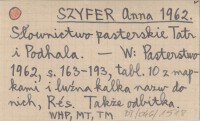 SZYFER Anna 1962.
Słownictwo pasterskie Tatr
i Podhala. — W: Pasterstwo
1962, s. 163-193, tabl. 10 z map-
kami i luźna kalka nazw do
nich, Rés. Także odbitka.
WHP, MT, TM